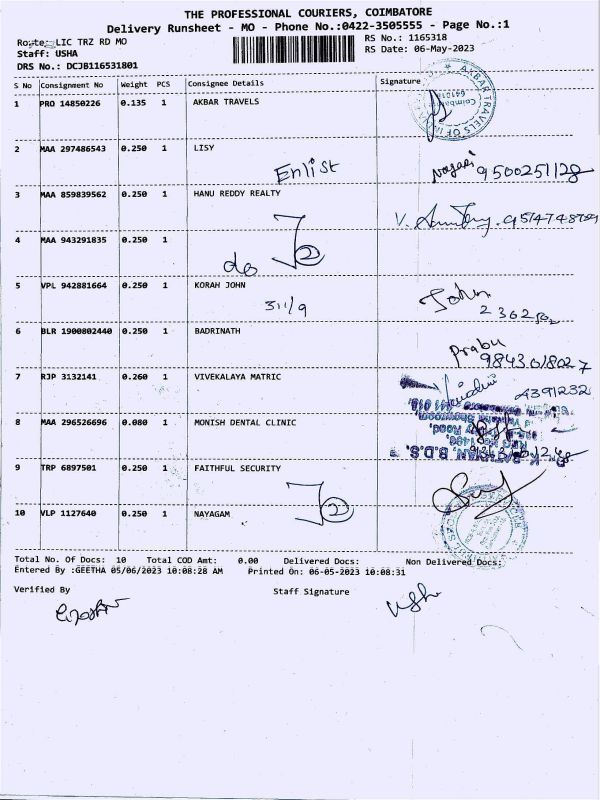 THE PROFESSIONAL COURIERS, COIMBATORE
Delivery Runsheet - MO - Phone No.:0422-3505555 - Page No.:1
Route: LIC TRZ RD MO RS No.: 1165318
Staff: USHA RS Date: 06-May-2023
DRS No.: DCJB116531801
S No Consignment No Weight PCS Consignee Details Signature
1 PRO 14850226 0.135 1 AKBAR TRAVELS
AKBAR TRAVELS OF INDIA
Coimbatore
2 MAA 297486543 0.250 1 LISY
Enlist Nagaraj 9500251128
3 MAA 859839562 0.250 1 HANU REDDY REALTY
V.
4 MAA 943291835 0.250 1
do
5 VPL 942881664 0.250 1 KORAH JOHN
311/9 John
6 BLR 1900802440 0.250 1 BADRINATH
Prabu
9843018027
7 RJP 3132141 0.260 1 VIVEKALAYA MATRIC
4391232
8 MAA 296526696 0.080 1 MONISH DENTAL CLINIC
B.D.S.
9 TRP 6897501 0.250 1 FAITHFUL SECURITY
10 VLP 1127640 0.250 1 NAYAGAM
Total No. Of Docs: 10 Total COD Amt: 0.00 Delivered Docs: Non Delivered Docs:
Entered By :GEETHA 05/06/2023 10:08:28 AM Printed On: 06-05-2023 10:08:31
Verified By Staff Signature
Usha